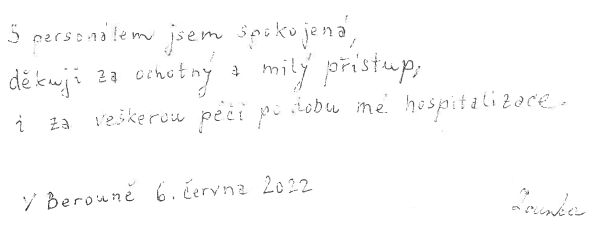 S personálem jsem spokojená,
děkuji za ochotný a milý přístup,
i za veškerou péči po dobu mé hospitalizace.
V Berouně 6. června 2022